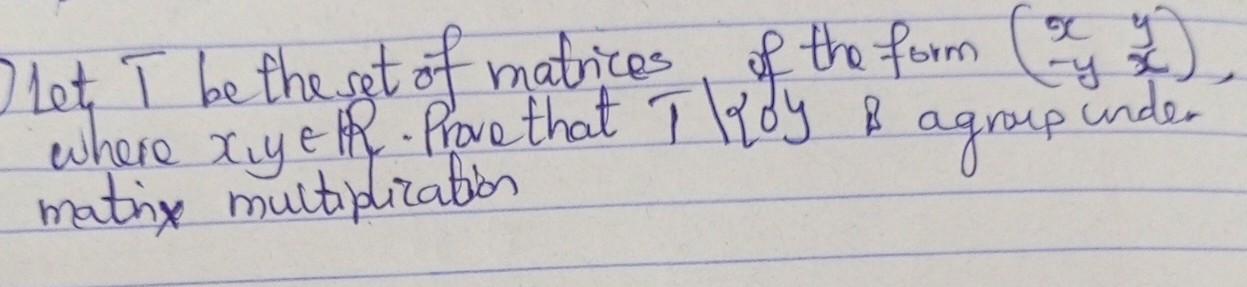 ) Let T be the set of matrices of the form (x y -y x),
where x,y ∈ ℝ. Prove that T \ {0} is a group under
matrix multiplication